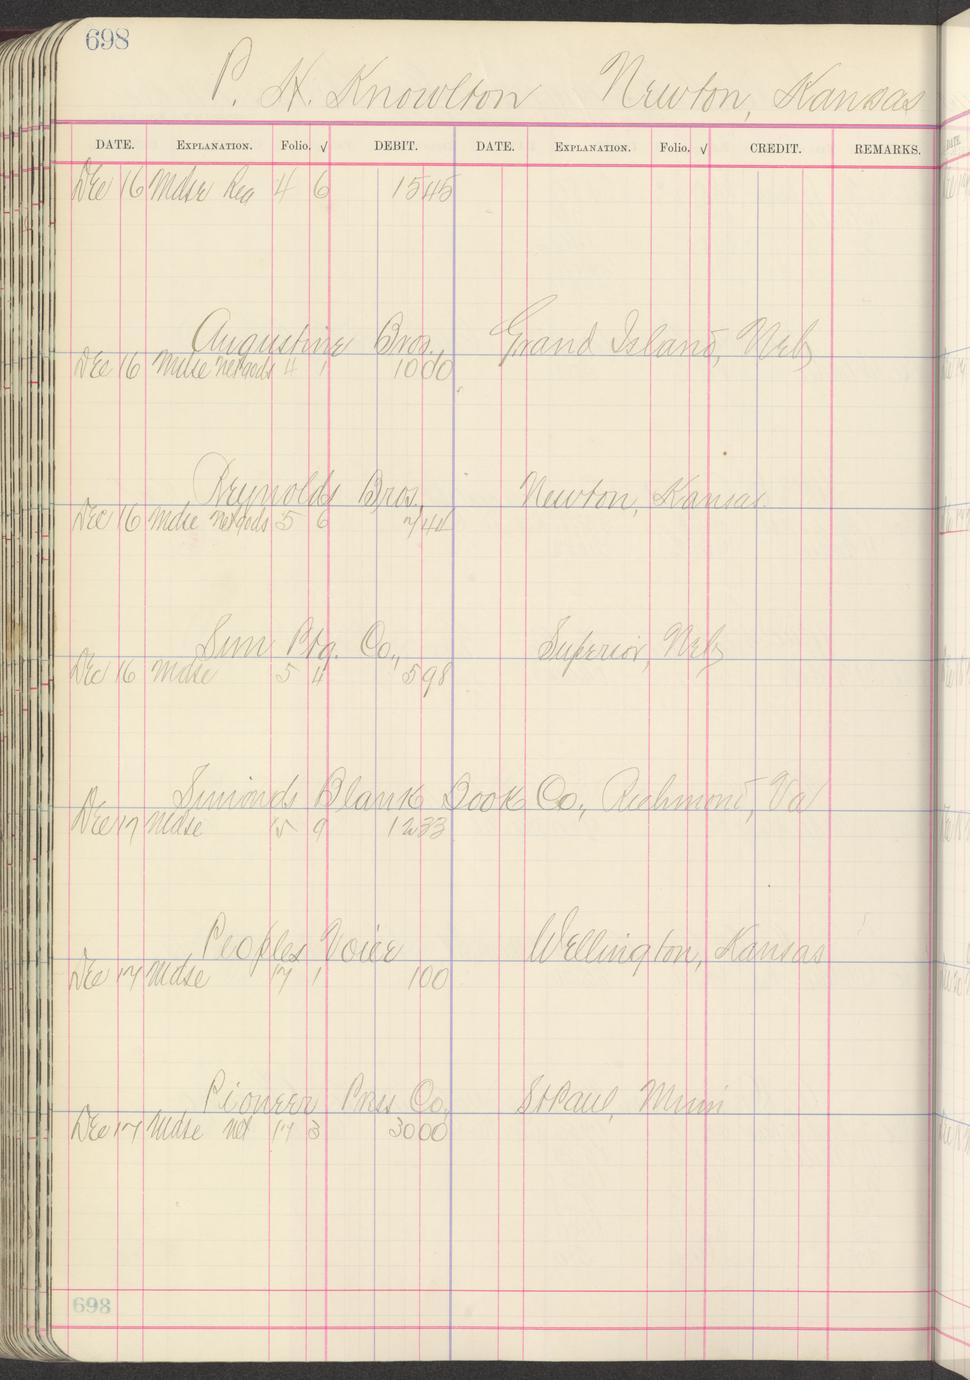 698
P. H. Knowlton Newton, Kansas
DATE. EXPLANATION. Folio. √ DEBIT. DATE. EXPLANATION. Folio. √ CREDIT. REMARKS.
Dec 16 Mdse Reg 4 6 1545
Augustine Bros. Grand Island, Neb
Dec 16 Mdse Net gods 4 1 1000
Reynolds Bros. Newton, Kansas.
Dec 16 Mdse Net gods 5 6 744
Sun Ptg. Co., Superior, Neb
Dec 16 Mdse 5 4 598
Simonds Blank Book Co., Richmond, Va
Dec 17 Mdse 15 9 1233
Peoples Voice Wellington, Kansas
Dec 17 Mdse 17 1 100
Pioneer Press Co. St Paul, Minn
Dec 17 Mdse net 17 3 3000
698